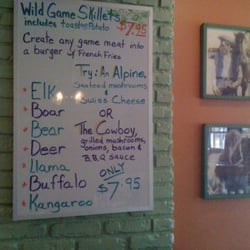 Wild Game Skillets
includes toast and Potato $7.95
Create any game meat into
a burger w/ French Fries
Try: An Alpine,
Sauteed mushrooms
&
Swiss Cheese
OR
The Cowboy,
grilled mushrooms,
onions, bacon &
B.B.Q sauce
ONLY
$7.95
* Elk
* Boar
* Bear
* Deer
* Llama
* Buffalo
* Kangaroo